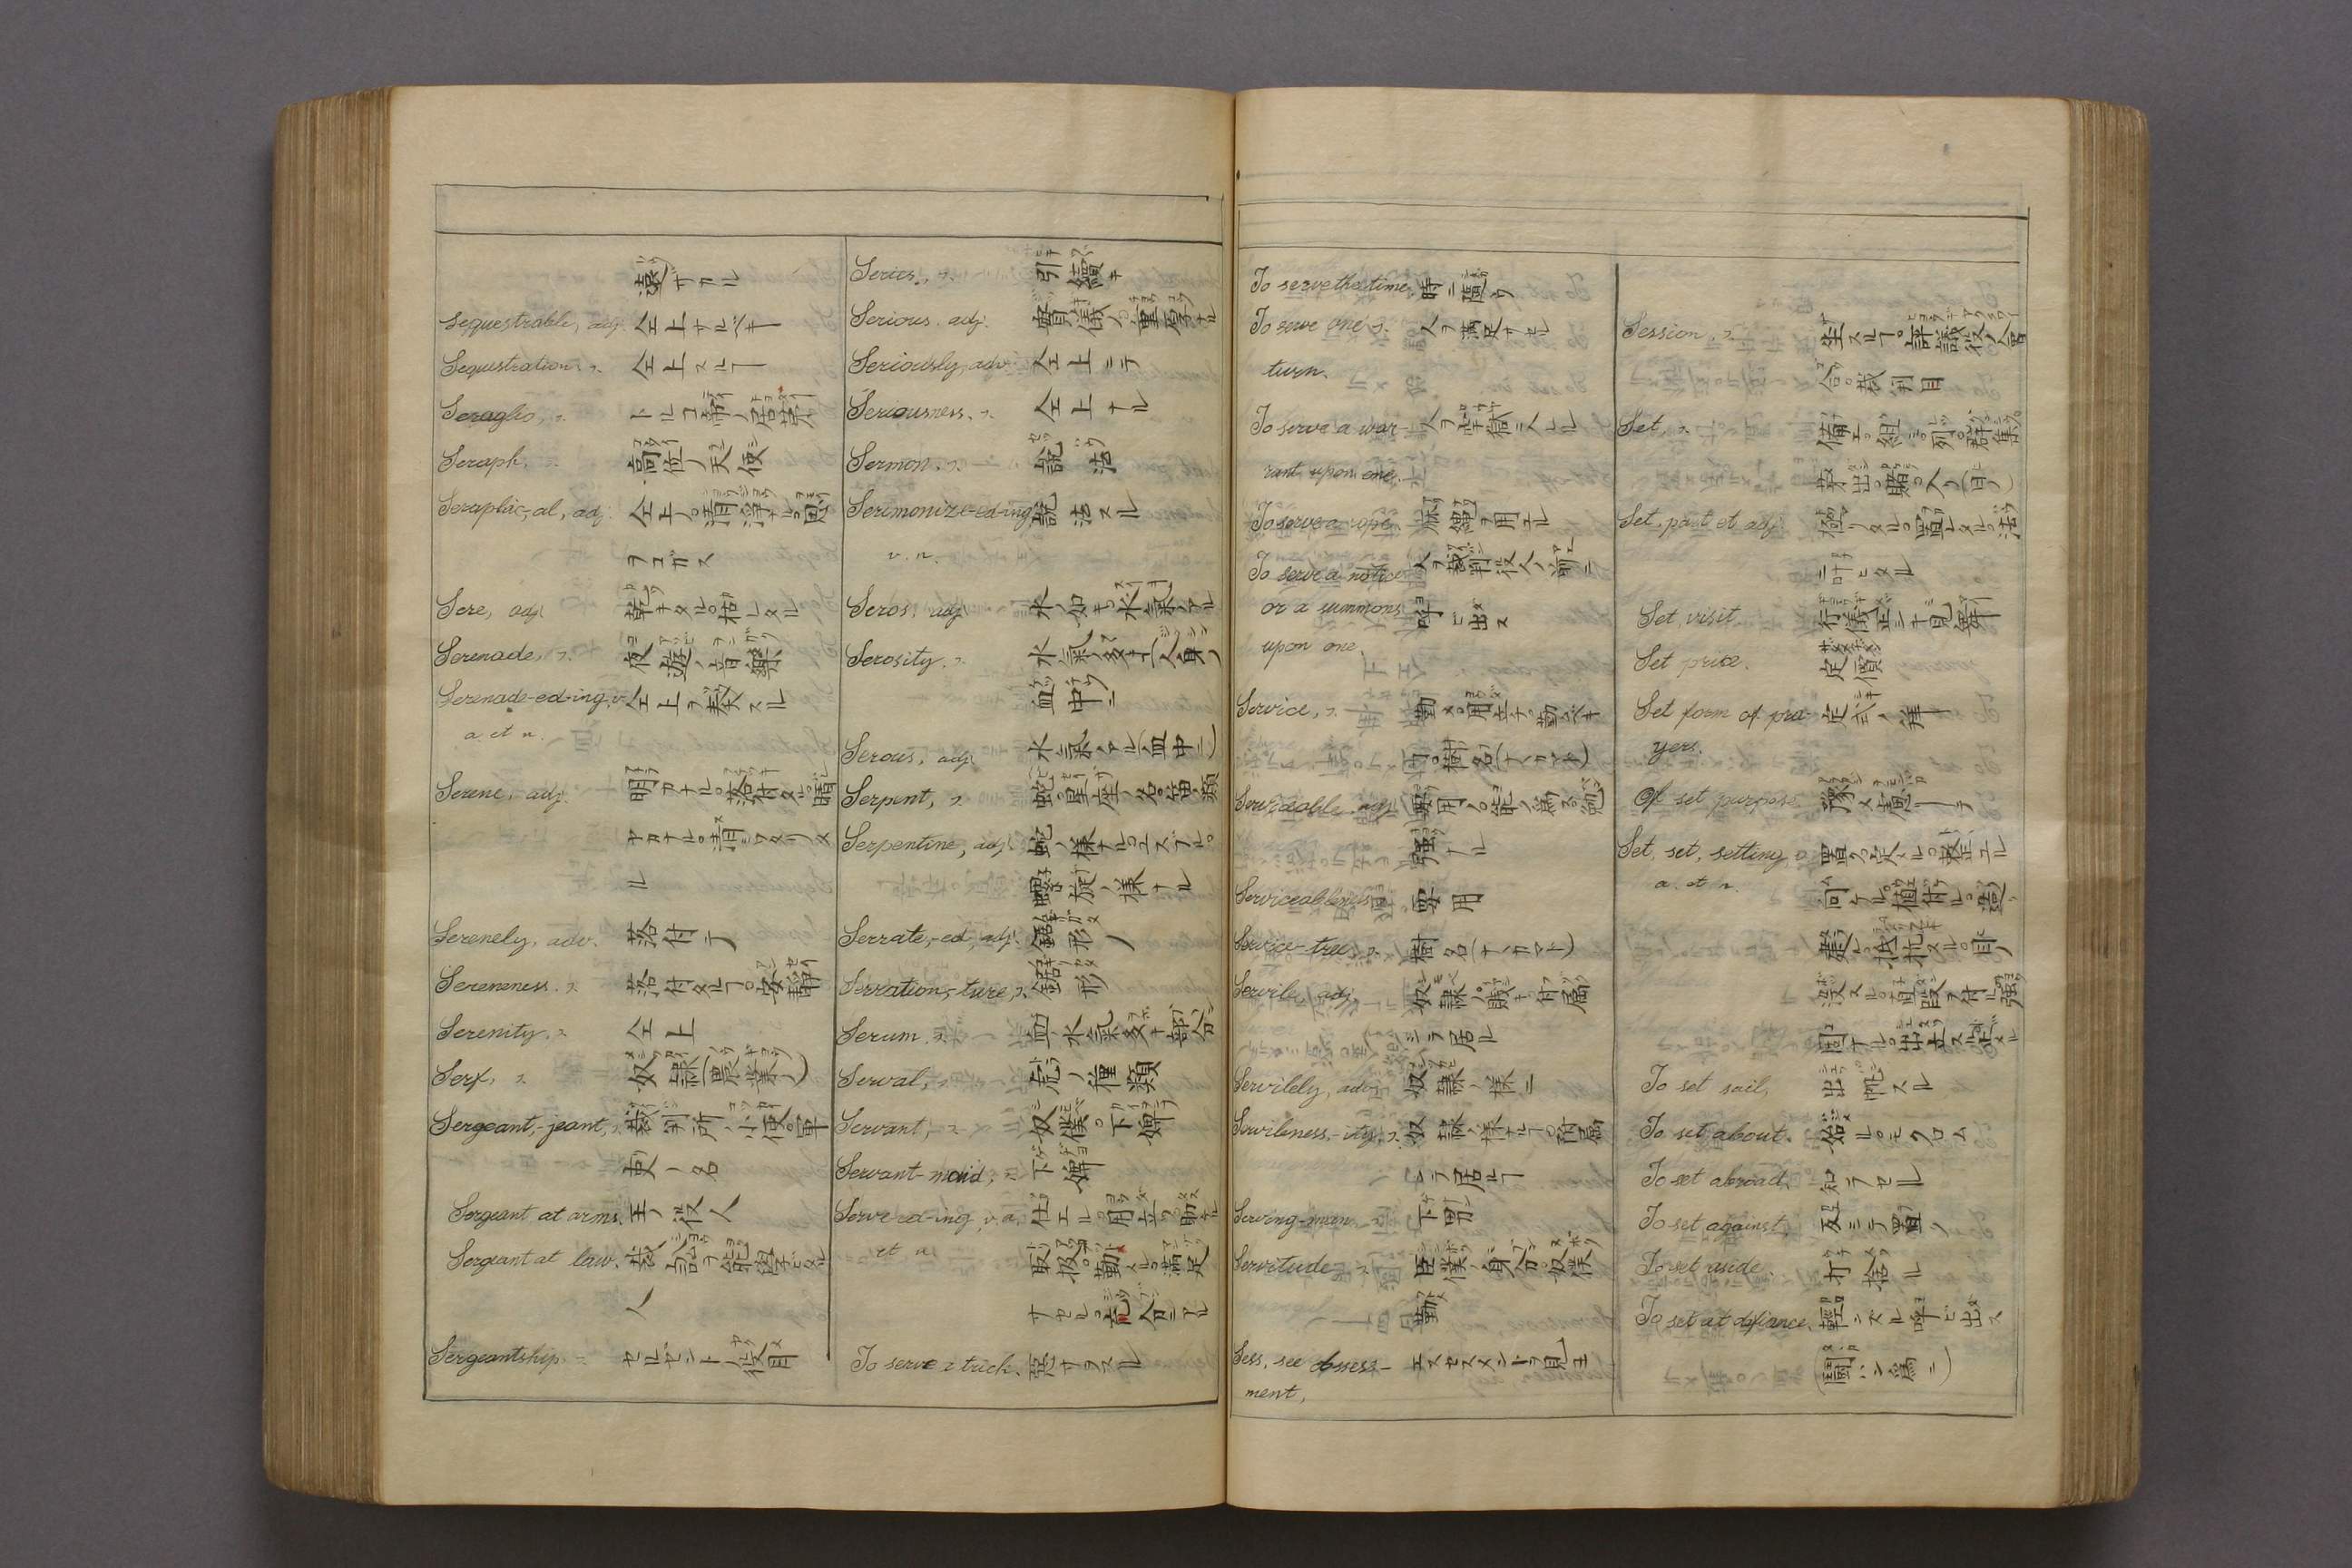 遠ザカル
Sequestrable, adj. 仝上ナルベキ
Sequestration. n. 仝上スルヿ
Seraglio, n. トルコ帝ノ居第
Seraph. 高位ノ天使
Seraphic,-al, adj. 仝上ノ。清浄ナル。
Sere, adj. 乾キタル。枯レタル
Serenade, n. 夜遊ノ音樂
Serenade-ed-ing, v. 仝上ヲ奏スル
a. et n.
Serene, adj. 明カナル。落付タル。晴
ヤカナル。
ル
Serenely, adv. 落付テ
Sereneness. n. 落付タルヿ。安静
Serenity. n. 仝上
Serf, n. 奴隷(農業ノ)
Sergeant,-jeant, n. 裁判所ノ小使。軍
吏ノ名
Sergeant at arms. 王ノ従人
Sergeant at law.
人
Sergeantship. n. セルゼントノ役目
Series., n. 引續キ
Serious. adj. 實儀ノ。重厚ナル
Seriously, adv. 仝上ニテ
Seriousness. n. 仝上ナル
Sermon. n. 説法
Sermonize-ed-ing 説法スル
v. n.
Seros, adj. 水ノ如キ。水氣ノアル
Serosity. n. 水氣ノ多キヿ(人身ノ
血中ノ
Serous, adj. 水氣ノアル(血中ニ)
Serpent, n. 蛇。星座ノ名。笛ノ類
Serpentine, adj. 蛇ノ様ナル。
螺旋ノ様ナル
Serrate,-ed, adj. 鋸形ノ
Serration,-ture, n. 鋸形
Serum. n. 血ノ水氣多キ部分
Serval, n. 虎ノ種類
Servant, n. 奴僕。下婢
Servant-maid, n. 下婢
Serve-ed-ing, v. a. 仕エル。用立ツ。助ケル
et n. 取扱。勤メル。満足
ナセル。
To serve a trick. 惡サヲスル
To serve the time 時ニ應ヅ
To serve one's 人ヲ満足サセル
turn.
To serve a war- 人ヲ牢獄ニ入レル
rant upon one.
To serve a rope 麻縄ヲ用エル
To serve a notice 人ヲ裁判役人ノ前ニ
or a summons 呼ビ出ス
upon one.
Service, n. 勤メ。用立チ。勤ベキ
所。樹名(ナナカマド)
Serviceable, adj.
Serviceableness 要用
Service-tree, n. 樹名(ナナカマド)
Servile, adj. 奴隷ノ。賎キ。付属
シテ居ル
Servilely, adv. 奴隷ノ様ニ
Servileness,-ity, n. 奴隷ノ様ナルヿ。附属
シテ居ルヿ
Serving-man. 下男
Servitude 臣僕ノ身分。奴僕
勤
Sess, see Assess- エスセスメントヲ見ヨ
ment,
Session, n. 坐スルヿ。評議役ノ會
合。裁判日
Set, n. 備エ。組ミ。列。群集。
Set, part et adj. 極リタル。置レタル。法
ニ叶ヒタル
Set visit 行儀正シキ見舞
Set price. 定價
Set form of pra- 定式ノ拝
yers.
Of set purpose 豫メ意ーテ
Set, set, setting, v. 置ク。定メル。整エル
a. et n. 向ケル。植付ル。
To set sail, 出帆スル
To set about. 始ル。モクロム
To set abroad, 知ラセル
To set against, 反シテ置ク
To set aside. 打捨ル
To set at defiance, 輕ンズル。呼ビ出ス
(鬪ハン為ニ)